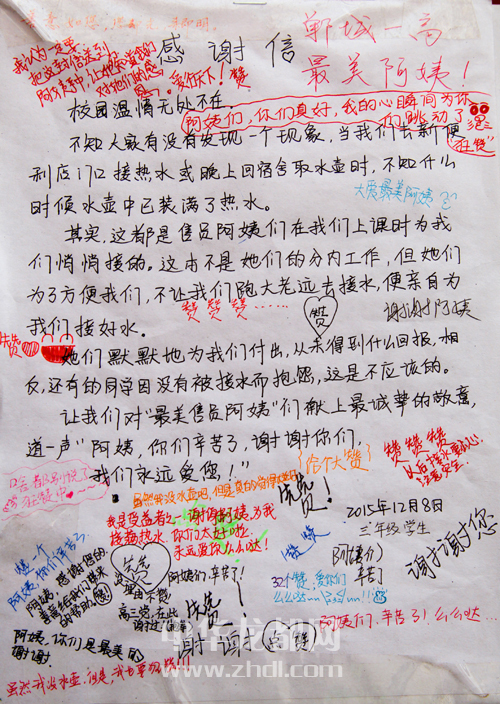 感谢信
郸城一高
最美阿姨！
校园温情无处不在。
阿姨们，你们真好，我的心瞬间为你
们跳动了
不知大家有没有发现一个现象，当我们去新便
利店门口接热水或晚上回宿舍取水壶时，不知什么
时候水壶中已装满了热水。
大爱最美阿姨
其实，这都是售员阿姨们在我们上课时为我
们悄悄接的。这本不是她们的分内工作，但她们
为了方便我们，不让我们跑大老远去接水，便亲自为
我们接好水。
赞赞赞……
赞
谢谢阿姨
她们默默地为我们付出，从未得到什么回报，相
反，还有的同学因没有被接水而抱怨，这是不应该的。
让我们对“最美售员阿姨”们献上最诚挚的敬意，
道一声“阿姨，你们辛苦了，谢谢你们，
我们永远爱您！”
给个大赞
赞赞赞
优赞！
2015年12月8日
三年级学生
我是受益者之一谢谢阿姨，为我
接热水
你们太好啦
永远爱你么么哒！
赞
阿姨们，辛苦了！
阿姨们
辛苦了
谢谢您
32个赞，爱你们
阿姨们，辛苦了！么么哒…
阿姨，感谢您的
高三党在此
谢过
阿姨，你们是最美的
谢谢
谢谢
点赞
虽然我没水壶，但是，我也要给赞!!!
中华龙都网
www.zhdl.com